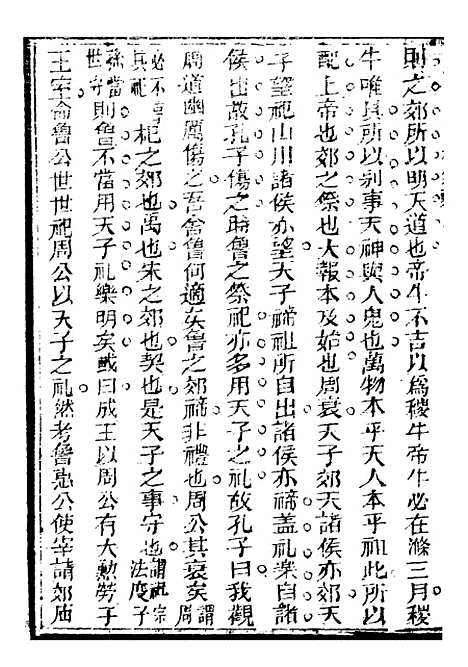 則之郊所以明天道也帝牛不吉以爲稷牛帝牛必在滌三月稷
牛唯具所以别事天神與人鬼也萬物本乎天人本乎祖此所以
配上帝也郊之祭也大報本反始也周衰天子郊天諸侯亦郊天
子望祀山川諸侯亦望天子禘祖所自出諸侯亦禘盖礼樂自諸
侯出故孔子傷之時魯之祭祀亦多用天子之礼故孔子曰我觀
周道幽厲傷之吾舍魯何適矣魯之郊禘非禮也周公其衰矣謂周
必不享其祀杞之郊也禹也宋之郊也契也是天子之事守也謂祀宗法度子
孫當世守則魯不當用天子礼樂明矣或曰成王以周公有大勲勞于
王室命魯公世世祀周公以天子之礼然考魯惠公使宰請郊庙